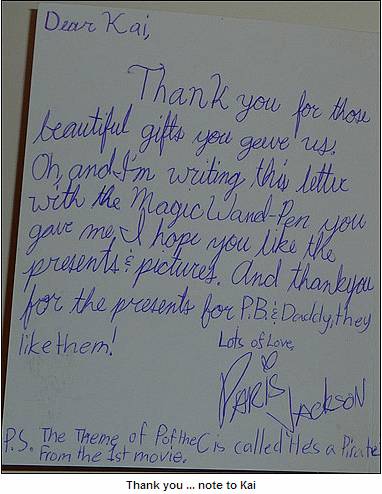 Dear Kai,
Thank you for those
beautiful gifts you gave us.
Oh, and I'm writing this letter
with the Magic Wand-Pen you
gave me, I hope you like the
presents & pictures. And thankyou
for the presents for P.B. & Daddy, they
like them!
Lots of Love,
PARIS
JACKSON
P.S. The Theme of PoftheC is called "He's a Pirate"
From the 1st movie.
Thank you ... note to Kai